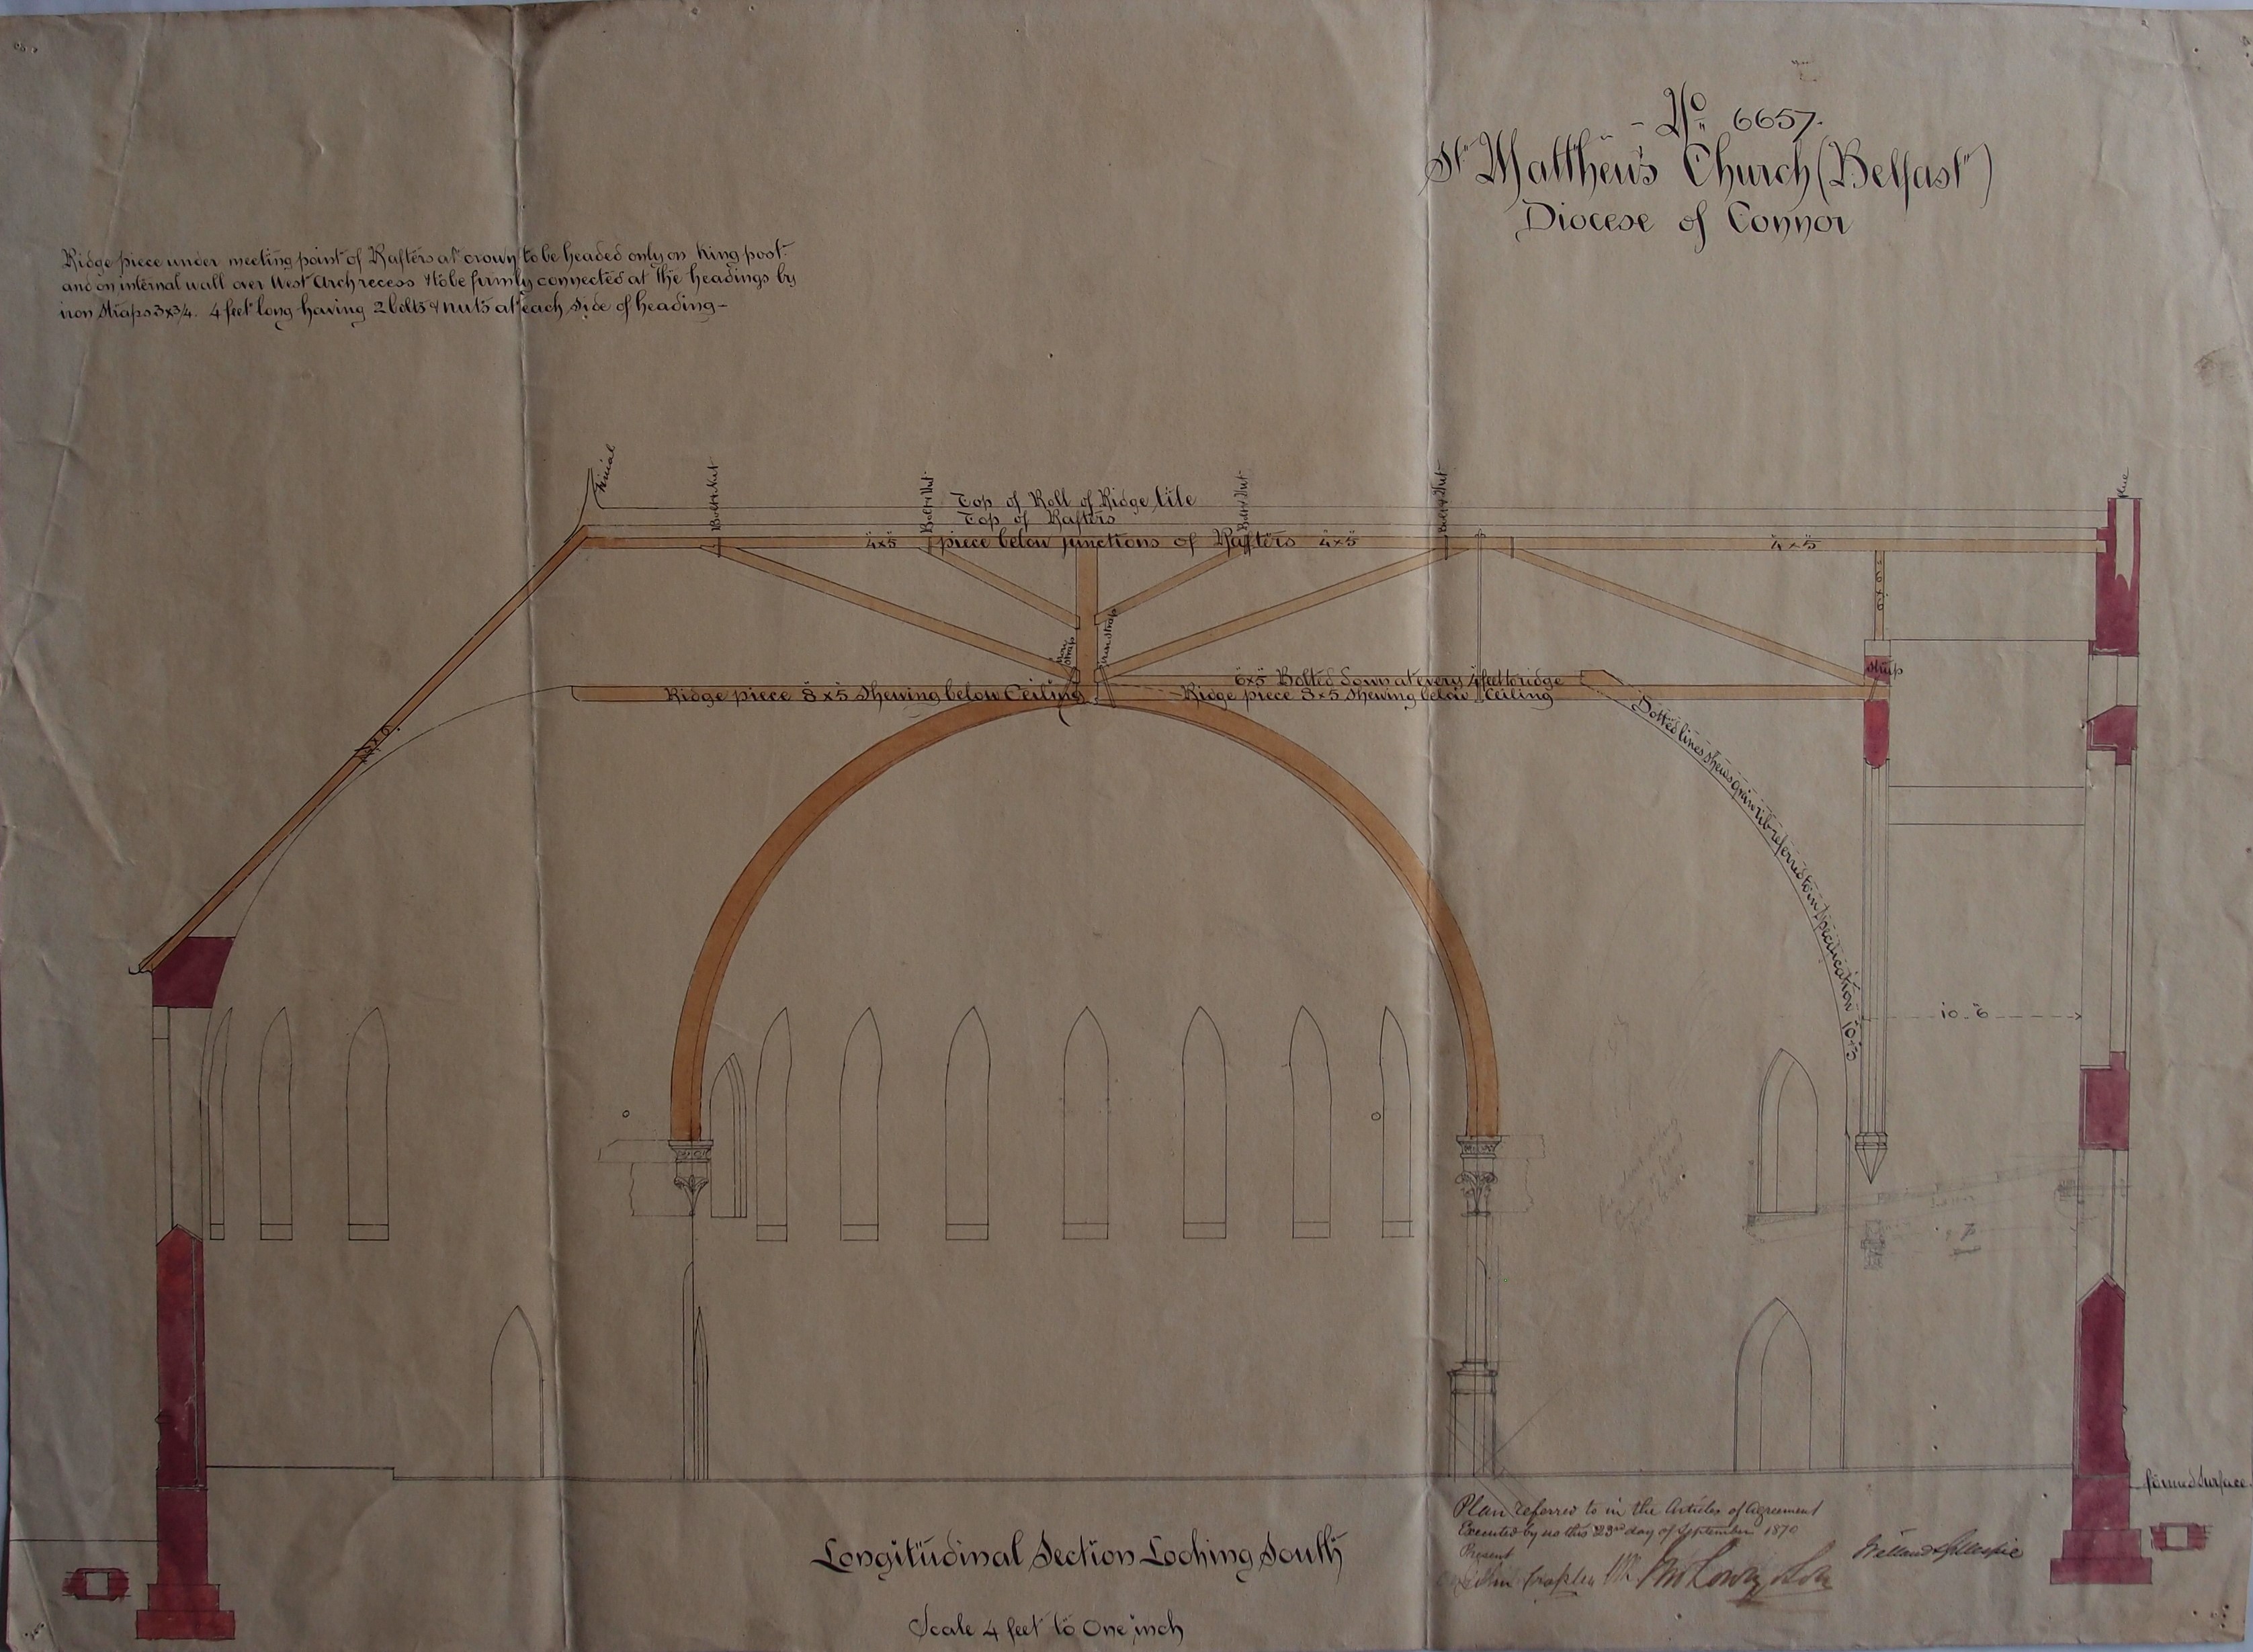 - No. 6657.
St. Matthew's Church (Belfast)
Diocese of Connor
Ridge piece under meeting point of Rafters at crown to be headed only on King post
and on internal wall over West Arch recess & to be firmly connected at the headings by
iron straps 3x3/4. 4 feet long having 2 bolts & nuts at each side of heading -
Finial
Bolt & Nut
Bolt & Nut
Bolt & Nut
Bolt & Nut
Flue
Top of Roll of Ridge tile
Top of Rafters
4x5
piece below junctions of Rafters
4x5
4x5
6x6
Iron strap
Iron strap
Strap
6x5 Bolted down at every 4 feet to ridge
Ridge piece 8x5 shewing below Ceiling
Ridge piece 8x5 shewing below Ceiling
Dotted lines shews groin rib referred to in specification 10x3
10.6
formed surface
Longitudinal Section Looking South
Scale 4 feet to One inch
Plan referred to in the Articles of Agreement
Executed by us this 23rd day of September 1870
Present
Welland & Gillespie
Lowry & Son